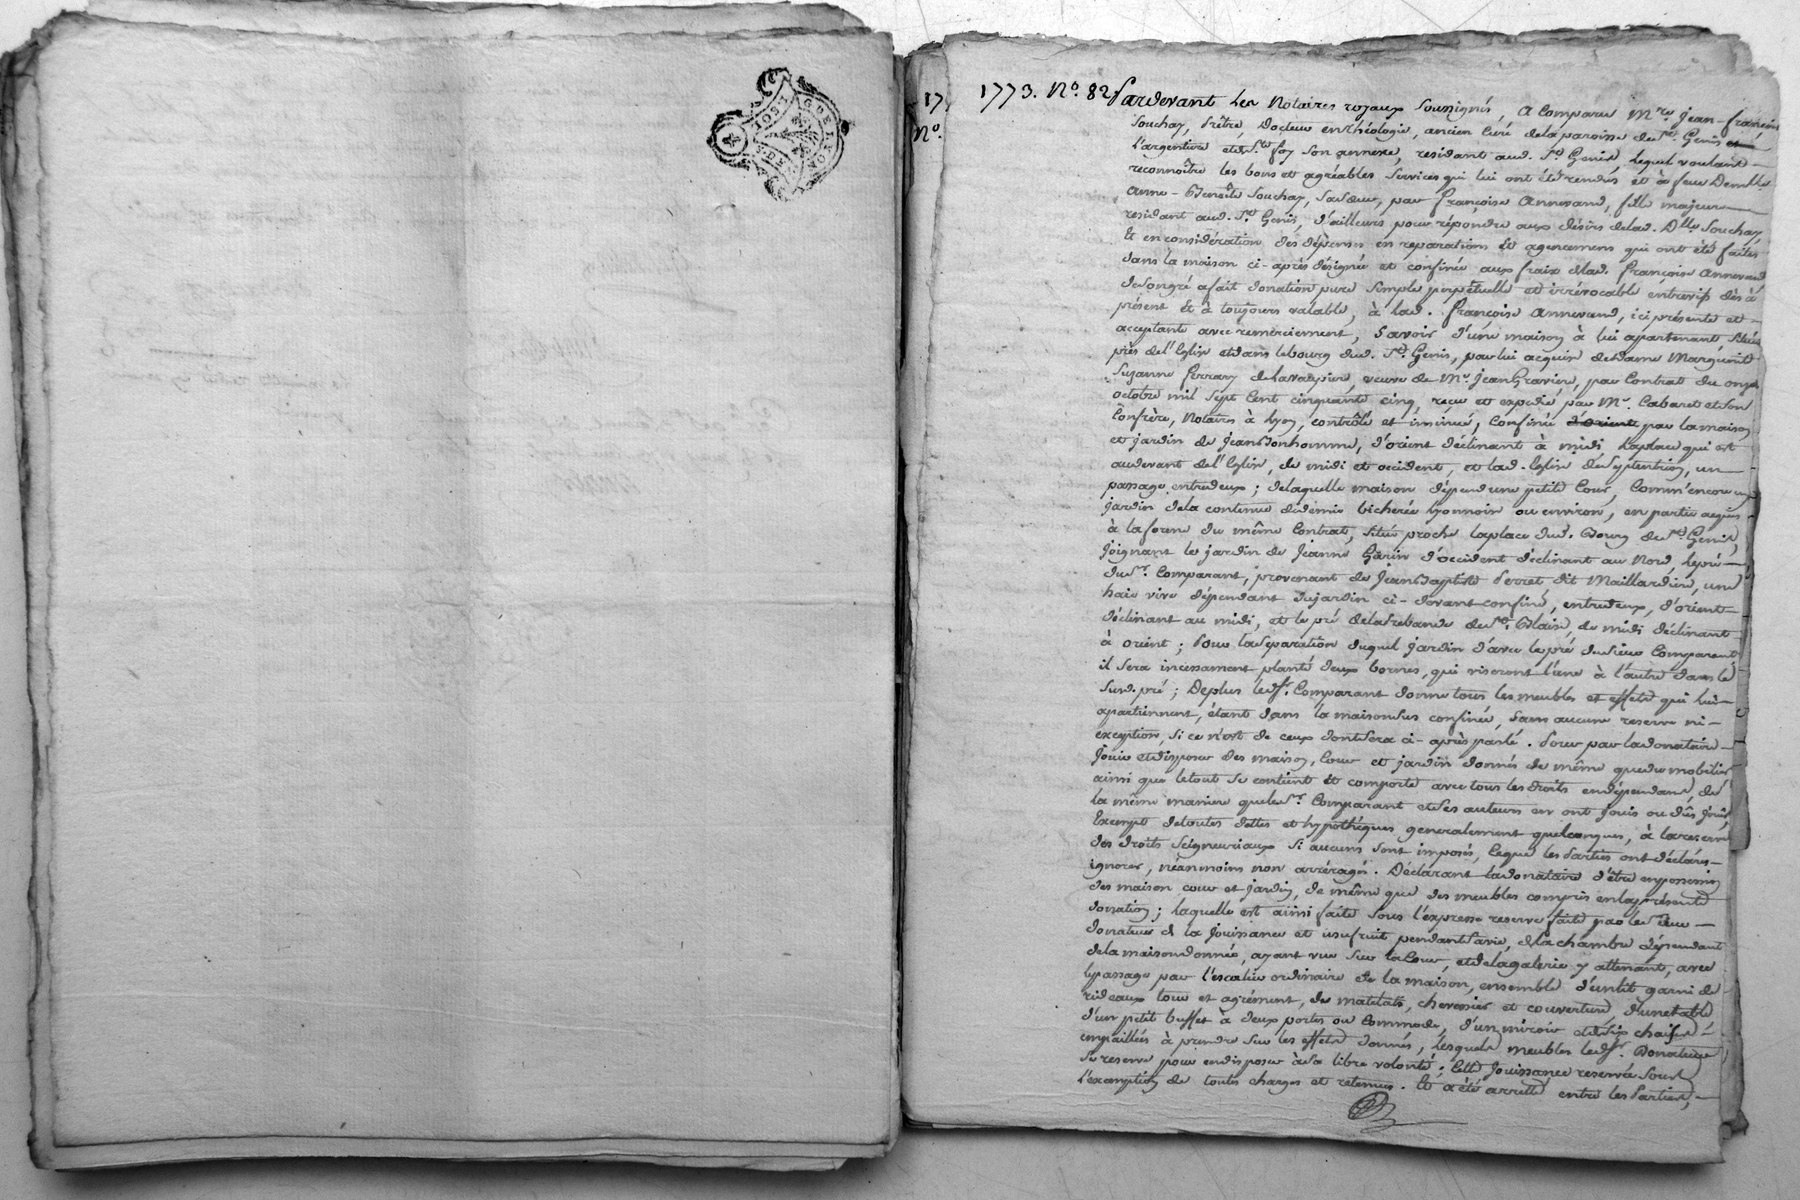 GDE LYON
1773. No. 82 Pardevant les Notaires royaux soussignés, a comparu Mre. Jean-françois
Souchay, Prêtre, Docteur en théologie, ancien Curé de la paroisse de St. Genis
L'argentiere et de Ste. foy son annexe, residant aud. St. Genis lequel voulant
reconnoître les bons et agréables services qui lui ont été rendus et à feue Demlle.
Anne-Benoîte Souchay, sa sœur, par françoise Annevand, fille majeure
residant aud. St. Genis, d'ailleurs pour répondre aux désirs de lad. Dlle. Souchay
Et en considération des dépenses en reparations et agencemens qui ont été faites
dans la maison ci-après désignée et confinée aux fraix de lad. françoise Annevand
de son gré a fait donation pure simple perpétuelle et irrévocable entrevifs dès à
présent et à toujours valable, à lad. françoise Annevand, ici présente et
acceptante avec remerciement, Savoir d'une maison à lui appartenant située
près de l'Eglise et dans le bourg dud. St. Genis, par lui acquise de dame Marguerite
Suzanne ferrary de la veuve de Mr. Jean Gravier, par Contrat du onze
octobre mil sept Cent cinquante cinq, reçu et expedié par Me. Cabaret et son
Confrère, Notaires à Lyon, contrôlé et insinué, Confinée d'orient par la maison
et jardin de Jean Bonhomme, d'orient déclinant à midi, la place qui est
audevant de l'Eglise, de midi et occident, et lad. Eglise de Septentrion, un
passage entredeux; de laquelle maison dépend une petite Cour, Comm'encore un
jardin de la contenue de demie bicherée Lyonnoise ou environ, en partie acquis
à la forme du même Contrat, situé proche la place dud. Bourg de St. Genis,
Joignant le jardin de Jeanne Garin d'occident déclinant au Nord, le pré
du Sr. Comparant, provenant de Jean Baptiste Perret dit Maillardin, une
haie vive dépendant du jardin ci-devant confiné, entredeux, d'orient
déclinant au midi, et le pré de la Prebande de St. Blaise, de midi déclinant
à orient; Pour la separation duquel jardin d'avec le pré du Sieur Comparant
il sera incessament planté deux bornes, qui viseront l'une à l'autre dans le
susd. pré; Deplus led. Sr. Comparant donne tous les meubles et effets qui lui
apartiennent, étant dans la maison sus confinée, sans aucune reserve ni
exception, si ce n'est de ceux dont sera ci-après parlé. Pour par la donataire
Jouir et disposer des maison, Cour et jardin donnés de même que du mobilier
ainsi que le tout se contient et comporte avec tous les droits en dépendans, de
la même maniere que le Sr. Comparant et ses auteurs en ont jouis ou dûs jouir
Exempt de toutes dettes et hypothèques generalement quelconques, à la reserve
des droits Seigneuriaux si aucuns sont imposés, ceque les Parties ont déclarés
ignorer, néanmoins non arréragés. Déclarant la donataire d'être en possession
des maison cour et jardin, de même que des meubles compris en la présente
donation; laquelle est ainsi faite sous l'expresse reserve faite par le Sieur
donateur de la Jouissance et usufruit pendant sa vie, de la chambre dépendant
de la maison donnée, ayant vue sur la Cour, et de la galerie y attenant, avec
le passage par l'escalier ordinaire de la maison, ensemble d'un lit garni de
rideaux tour et agrément, de matelats, chevessier et couverture, d'une table
d'un petit buffet à deux portes ou Commode, d'un miroir et de six chaises
empaillées à prendre sur les effets donnés, lesquels meubles led. Sr. Donateur
se reserve pour en disposer à sa libre volonté; Cette Jouissance reservée sous
l'exemption de toutes charges et retenues. Et a été arretté entre les Parties,